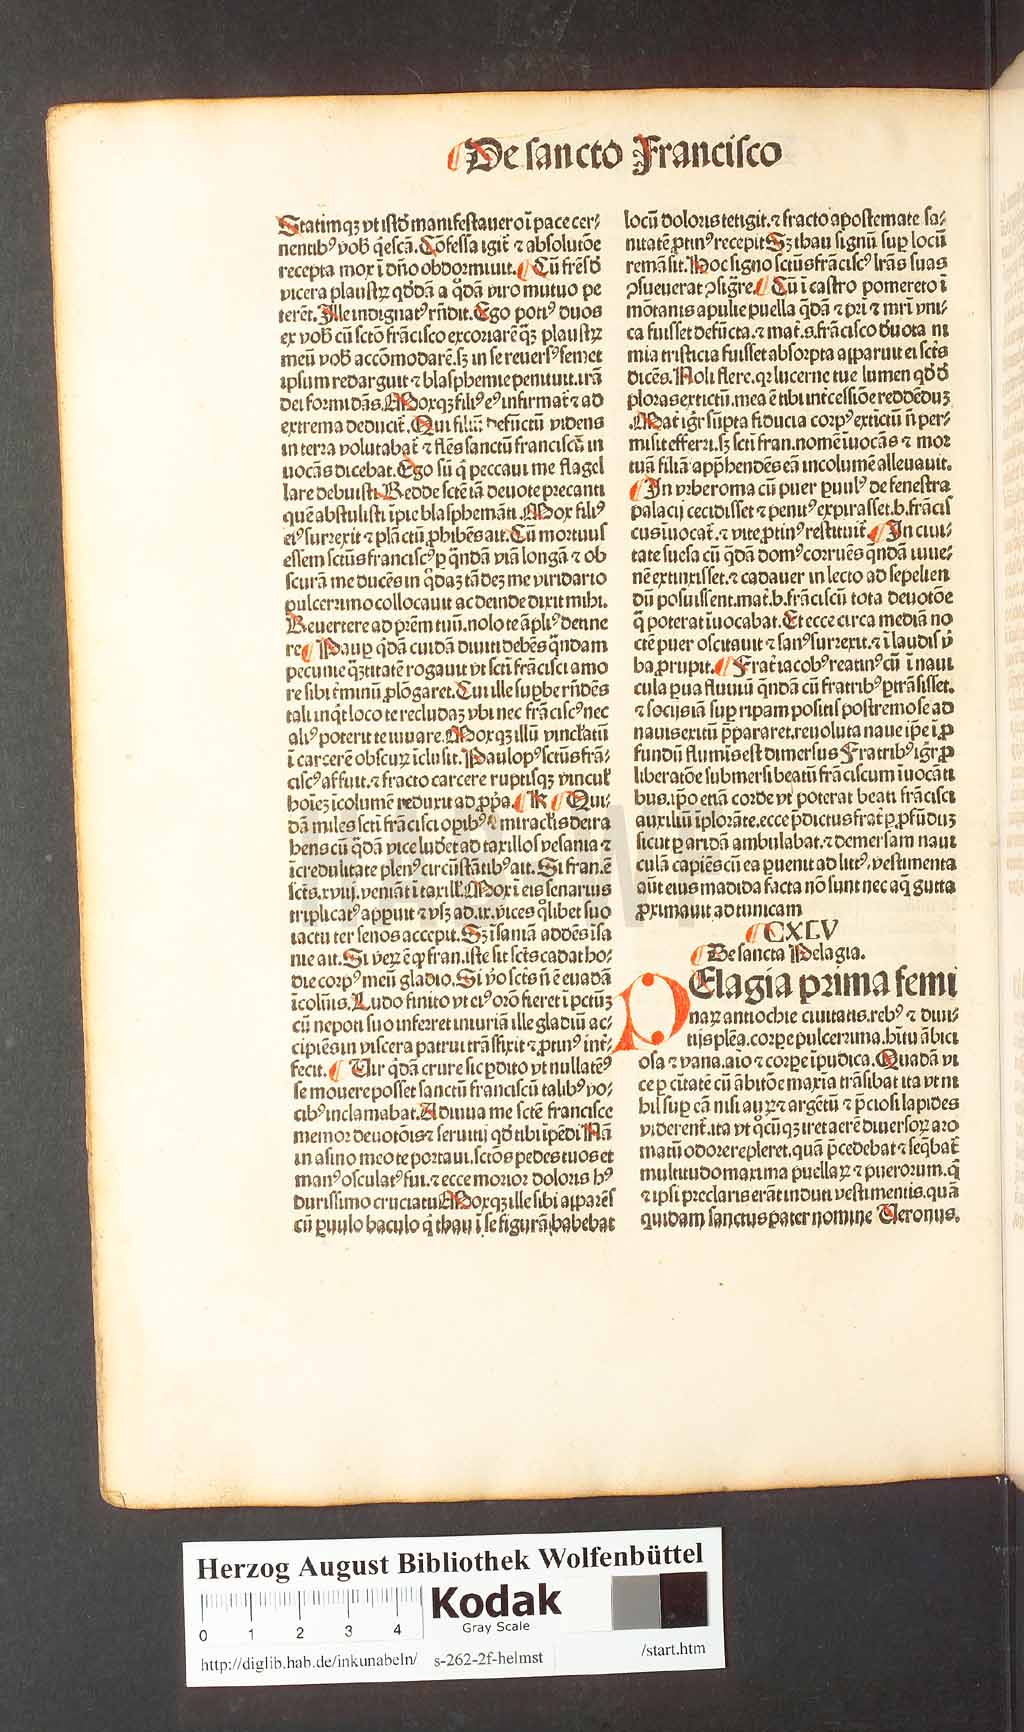 De sancto Francisco
Statimqꝫ vt istd̄ manifestauero ī pace cer⸗
nentibꝰ vob̄ q̇escā. Cōfessa igit̄ ⁊ absolutōe
recepta mox ī dn̄o obdormiuit. Cū fr̄es d̄
vicera plaustꝝ qd̓dā a q̊dā viro mutuo pe
terēt. Ille indignatꝰ rn̄dit. Ego potiꝰ duos
ex vob̄ cū sctō frācisco excoriarē qꝫ plaustꝝ
meū vob̄ accōmodarē. sꝫ in se reuersꝰ semet
ipsum redarguit ⁊ blasphemie penituit. irā
dei formidās. Moxqꝫ filiꝰ eꝰ infirmat̄ ⁊ ad
extrema deducit̄. Qui filiū defūctū videns
in terra volutabat̄ ⁊ flēs sanctū franciscū in
uocās dicebat. Ego sū q̇ peccaui me flagel
lare debuisti. Redde sctē iā deuote precanti
quē abstulisti īpie blasphemāti. Mox filiꝰ
eiꝰ surrexit ⁊ plāctū ꝓhibēs ait. Cū mortuus
essem sctūs franciscꝰ ꝑ qn̄dā viā longā ⁊ ob
scurā me ducēs in q̊daꝫ tādeꝫ me viridario
pulcerrimo collocauit ac deinde dixit mihi.
Reuertere ad pr̄em tuū. nolo te āpliꝰ detine
re Paup̄ q̇dā cuidā diuiti debēs qn̄dam
pecunie qꝫtitatē rogauit vt scti frācisci amo
re sibi t̄minū ꝓlōgaret. Cui ille suꝑbe rn̄dēs
tali inq̇t loco te recludaꝫ vbi nec frāciscꝰ nec
aliꝰ poterit te iuuare. Moxqꝫ illū vinclatū
ī carcerē obscurꝫ īclusit. Paulo pꝰ sctūs frā⸗
ciscꝰ affuit. ⁊ fracto carcere ruptisqꝫ vincul̄
hoīeꝫ īcolumē reduxit ad ꝓp̄a. K Qui⸗
dā miles scti frācisci oꝑibꝰ ⁊ miraclis detra
hens cū q̇dā vice ludēt ad taxillos vesania ⁊
īcredulitate plenꝰ circūstātibꝰ ait. Si fran. ē
sctūs. xviij. veniāt ī taxill̄. Mox ī eis senarius
triplicatꝰ apꝑuit ⁊ vsqꝫ ad. ix. vices q̊libet suo
iactu ter senos accepit. Sꝫ īsaniā addēs īsa
nie ait. Si veꝝ ē ꝙ fran. iste sit sctūs cadat ho⸗
die corpꝰ meū gladio. Si v̓o sctūs n̄ ē euadā
īcolūis. Ludo finito vt eiꝰ orō fieret ī pctūꝫ
cū nepoti suo inferret iniuriā ille gladiū ac⸗
cipiēs in viscera patrui trāsfixit ⁊ ꝓtinꝰ int̓⸗
fecit. Vir q̇dā crure sic ꝑdito vt nullatēꝰ
se mouere posset sanctū franciscū talibꝰ vo⸗
cibꝰ inclamabat. Adiuua me sctē francisce
memor deuotōis ⁊ seruitij qd̓ tibi īpēdi Nā
in asino meo te portaui. sctōs pedes tuos et
manꝰ osculatꝰ fui. ⁊ ecce morior doloris hꝰ
durissimo cruciatu Moxqꝫ ille sibi apparēs
cū ꝑuulo baculo q̇ thau ī se figurā habebat
locū doloris tetigit. ⁊ fracto apostemate sa⸗
nitatē ꝓtinꝰ recepit Sꝫ thau signū suꝑ locū
remāsit. Hoc signo sctūs frāciscꝰ lr̄as suas
ꝯsueuerat ꝯsigr̄e. Cū ī castro pomereto ī
mōtanis apulie puella q̇dā ⁊ pr̄i ⁊ mr̄i vni⸗
ca fuisset defūcta. ⁊ mat̄. s. frācisco d̓uota ni
mia tristicia fuisset absorpta apparuit ei sctūs
dicēs. Noli flere. qꝛ lucerne tue lumen qd̓ d̓
ploras extictū. mea ē tibi intcessiōe reddēduꝫ
. Mat̄ igr̄ sūpta fiducia corpꝰ extictū n̄ per⸗
misit efferri. sꝫ scti fran. nomē īuocās ⁊ mor
tuā filiā app̄hendēs eā incolumē alleuauit.
In vrbe roma cū puer ꝑuulꝰ de fenestra
palacij cecidisset ⁊ penitꝰ expirasset. b. frācis
cus īuocat̄. ⁊ vite ꝓtinꝰ restituit̄. In ciui⸗
tate suesa cū q̇dā domꝰ corruēs qn̄dā iuue⸗
nē extinxisset. ⁊ cadauer in lecto ad sepelien
dū posuissent. mat̄. b. frāciscū tota deuotōe
q̄ poterat īuocabat. Et ecce circa mediā no
ctē puer oscitauit ⁊ sanꝰ surrexit. ⁊ ī laudis v̓
ba ꝓrupit. Frat̄ iacobꝰ reatinꝰ cū ī naui
cula ꝑua fluuiū qn̄dā cū fratribꝰ ꝑtrāsisset.
⁊ socijs iā suꝑ ripam positis postremo se ad
nauis exitū p̄pararet. reuoluta naue ip̄e ī ꝓ
fundū fluminis est dimersus Fratribꝰ igr̄ ꝓ
liberatōe submersi beatū frāciscum īuocāti
bus. ip̄o etiā corde vt poterat beati frācisci
auxiliū īplorāte. ecce p̄dictus frat̄ ꝑ ꝓfūduꝫ
sicut ꝑ aridā ambulabat. ⁊ demersam naui
culā capiēs cū ea ꝑuenit ad litꝰ. vestimenta
aūt eius madida facta nō sunt nec aq̄ gutta
ꝓximauit ad tunicam
CXLV
De sancta Pelagia.
PElagia prima femi
naꝝ antiochie ciuitatis. rebꝰ ⁊ diui⸗
tijs plēa. corꝑe pulcerrima. hītu ābici
osa ⁊ vana. aīo ⁊ corꝑe īpudica. Quadā vi
ce ꝑ ciutatē cū ābitōe maxīa trāsibat ita vt ni
hil suꝑ eā nisi auꝝ ⁊ argētū ⁊ p̄ciosi lapides
viderent̄. ita vt q̊cūqꝫ iret aerē diuersoꝝ aro
matū odore repleret. quā p̄cedebat ⁊ seq̄bat̄
multitudo maxima puellaꝝ ⁊ puerorum. q̄
⁊ ipsi preclaris erāt induti vestimentis. quā
quidam sanctus pater nomine Veronus.
Herzog August Bibliothek Wolfenbüttel
0 1 2 3 4
Kodak
Gray Scale
http://diglib.hab.de/inkunabeln/ s-262-2f-helmst /start.htm